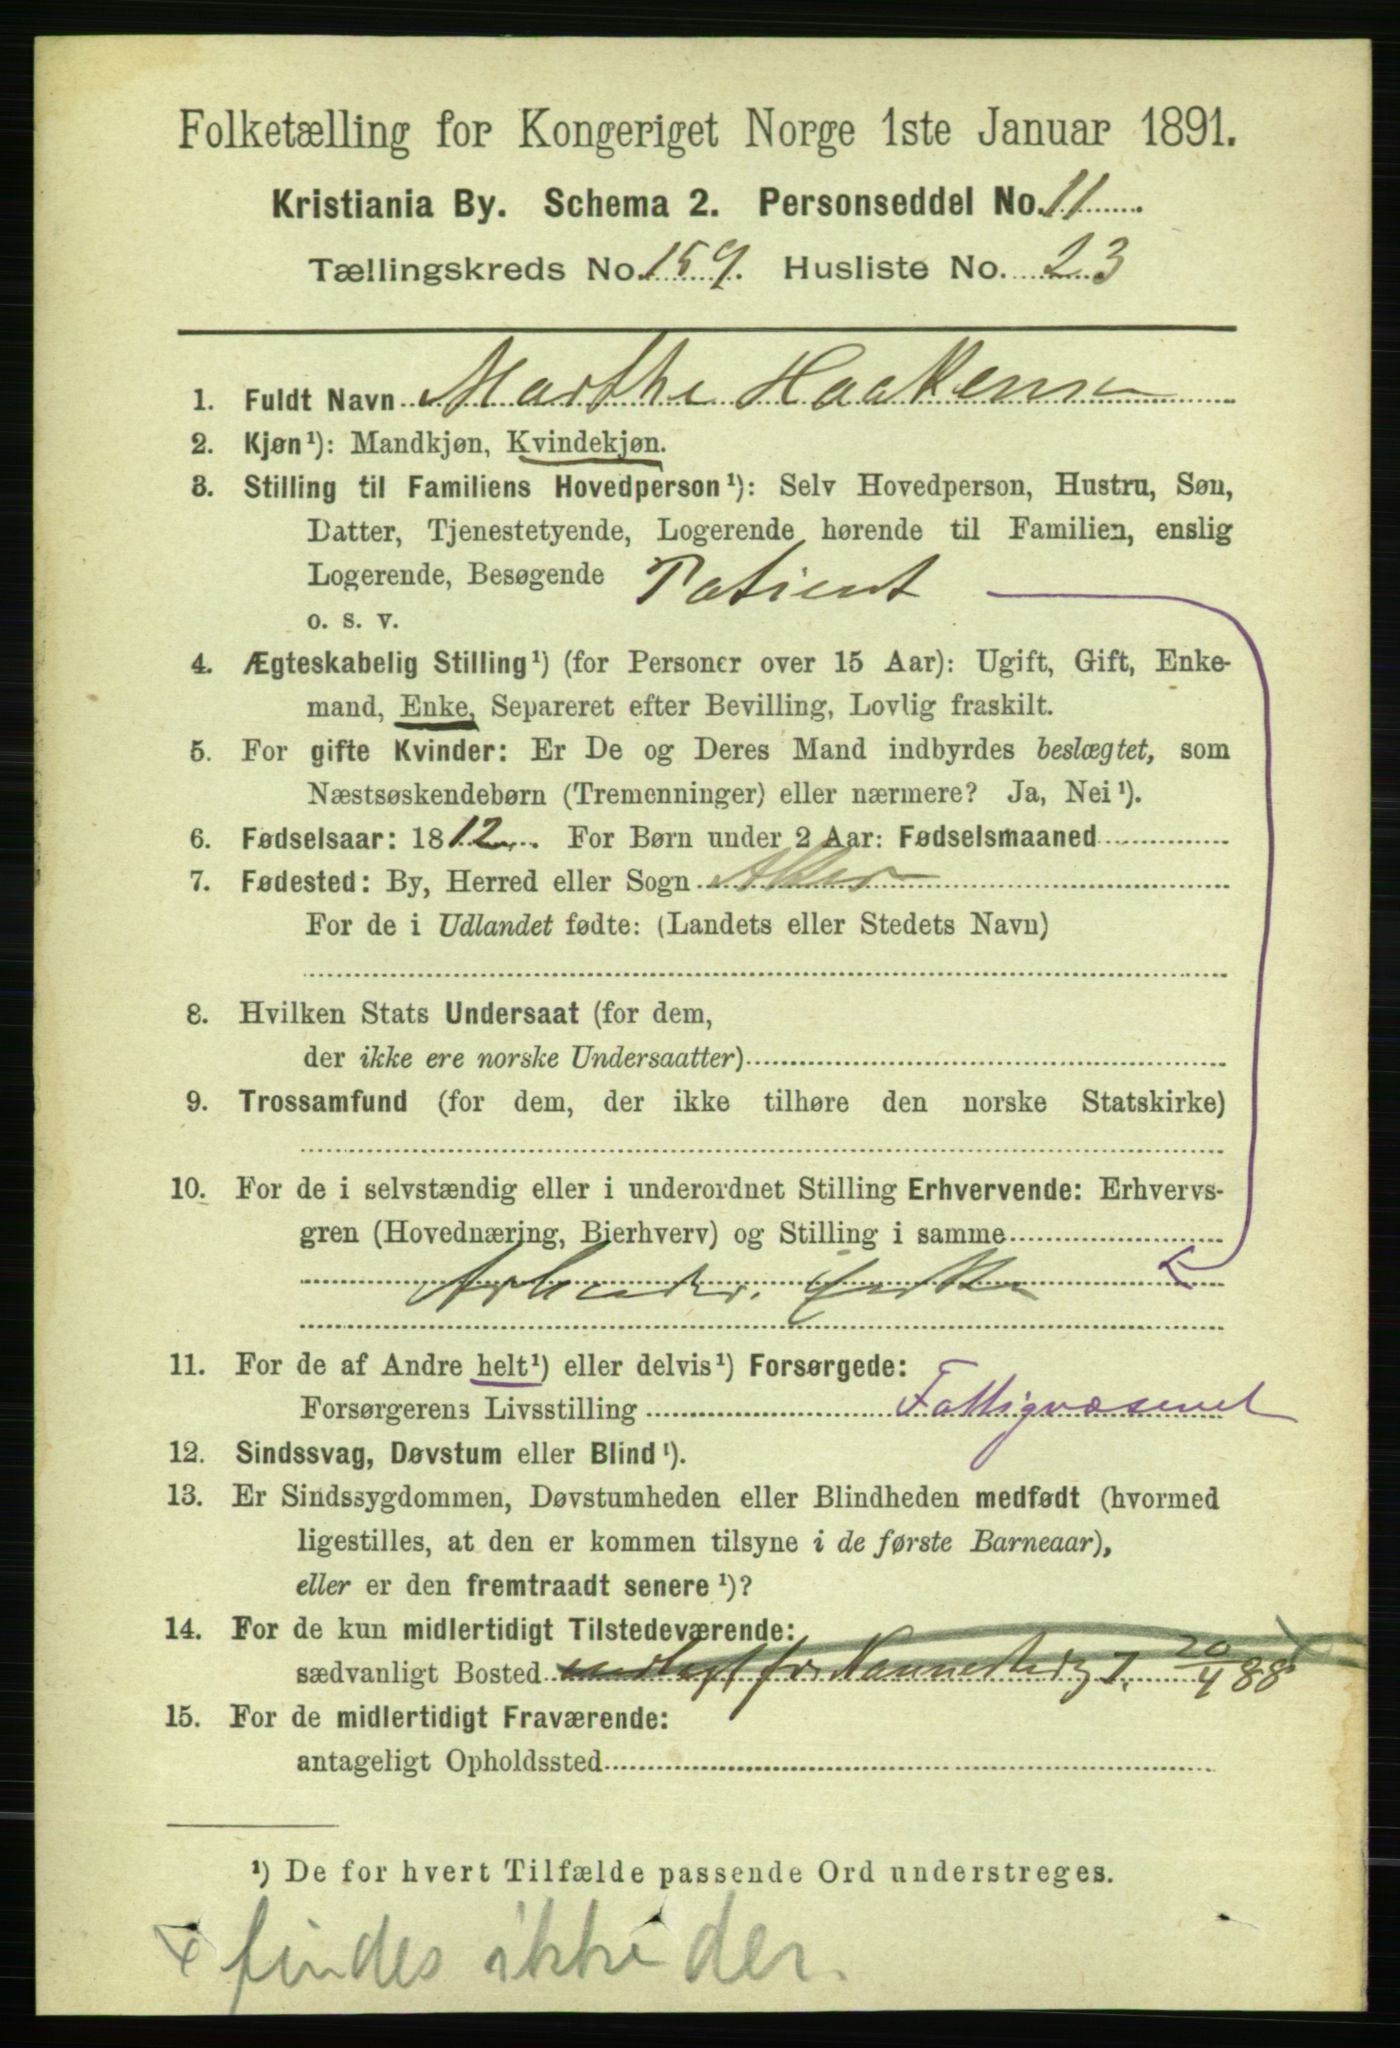 Folketælling for Kongeriget Norge 1ste Januar 1891.
Kristiania By. Schema 2. Personseddel No. 11
Tællingskreds No. 159. Husliste No. 23
1. Fuldt Navn Marthe Haakensen
2. Kjøn¹): Mandkjøn, Kvindekjøn.
3. Stilling til Familiens Hovedperson¹): Selv Hovedperson, Hustru, Søn,
Datter, Tjenestetyende, Logerende hørende til Familien, enslig
Logerende, Besøgende Patient
o. s. v.
4. Ægteskabelig Stilling¹) (for Personer over 15 Aar): Ugift, Gift, Enke-
mand, Enke, Separeret efter Bevilling, Lovlig fraskilt.
5. For gifte Kvinder: Er De og Deres Mand indbyrdes beslægtet, som
Næstsøskendebørn (Tremenninger) eller nærmere? Ja, Nei¹).
6. Fødselsaar: 1812. For Børn under 2 Aar: Fødselsmaaned
7. Fødested: By, Herred eller Sogn Aker
For de i Udlandet fødte: (Landets eller Stedets Navn)
8. Hvilken Stats Undersaat (for dem,
der ikke ere norske Undersaatter)
9. Trossamfund (for dem, der ikke tilhøre den norske Statskirke)
10. For de i selvstændig eller i underordnet Stilling Erhvervende: Erhvervs-
gren (Hovednæring, Bierhverv) og Stilling i samme
Arbeider. Enke
11. For de af Andre helt¹) eller delvis¹) Forsørgede:
Forsørgerens Livsstilling Fattigvæsenet
12. Sindssvag, Døvstum eller Blind¹).
13. Er Sindssygdommen, Døvstumheden eller Blindheden medfødt (hvormed
ligestilles, at den er kommen tilsyne i de første Barneaar),
eller er den fremtraadt senere¹)?
14. For de kun midlertidigt Tilstedeværende:
sædvanligt Bosted indlagt fr. 7. 20/4 88 x
15. For de midlertidigt Fraværende:
antageligt Opholdssted
¹) De for hvert Tilfælde passende Ord understreges.
x findes ikke der.